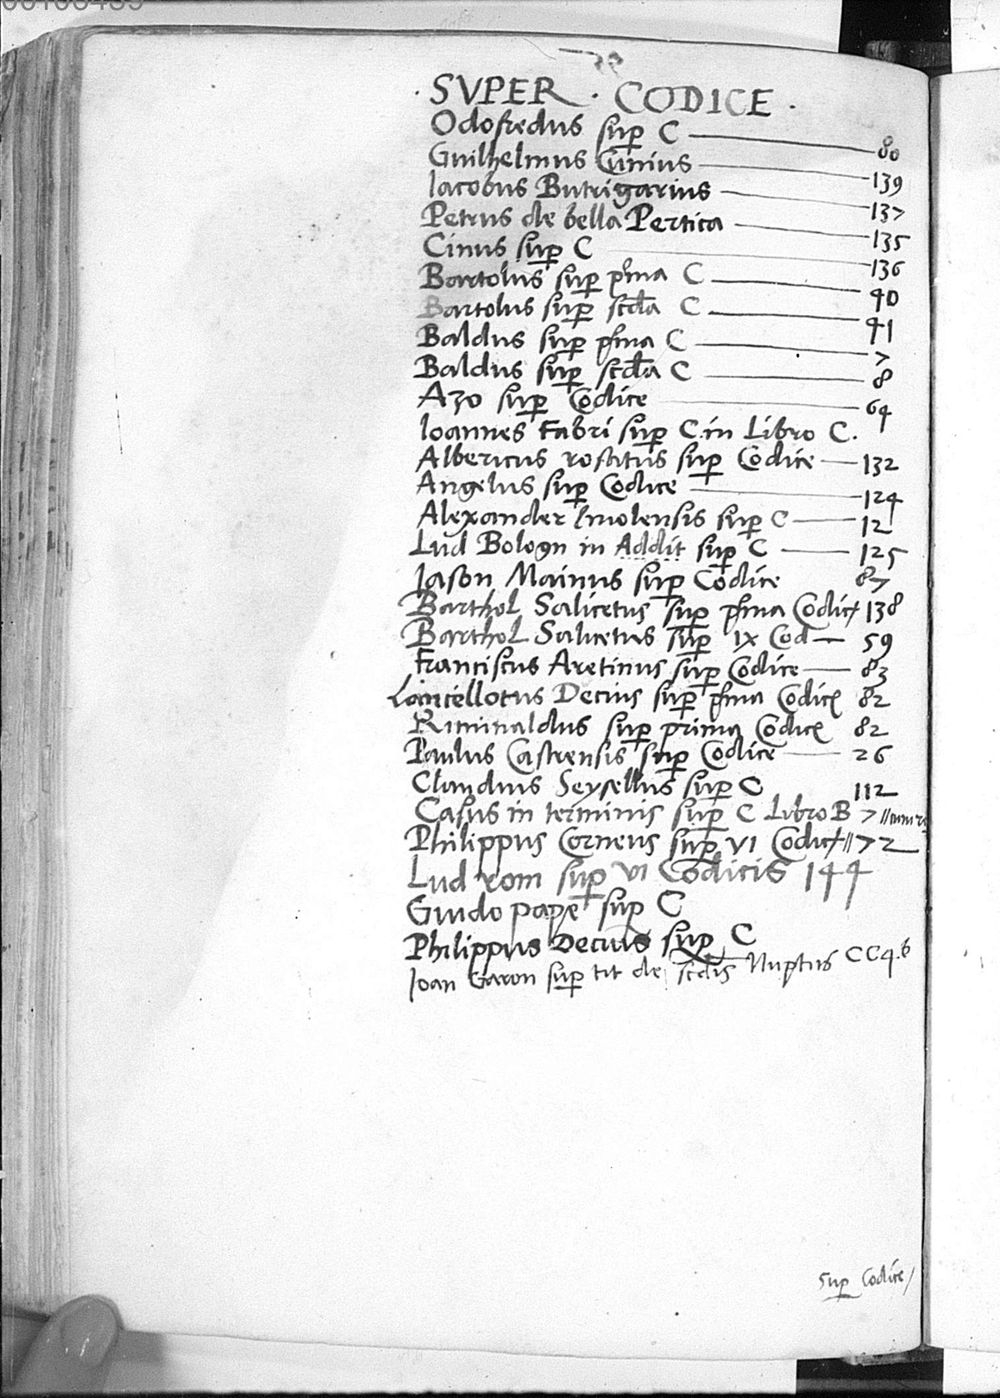 · SVPER · CODICE ·
Odofredus sup C — 80
Guilhelmus Cunius — 139
Iacobus Butrigarius — 137
Petrus de bella Pertica — 135
Cinus sup C — 136
Bartolus sup pma C — 40
Bartolus sup scda C — 41
Baldus sup pma C — 7
Baldus sup scda C — 8
Azo sup Codice — 64
Ioannes Fabri sup C in Libro C.
Albericus rosatus sup Codice — 132
Angelus sup Codice — 124
Alexander Imolensis sup C — 12
Lud Bologn in Addit sup C — 125
Iason Mainus sup Codice 87
Barthol Salicetus sup pma Codic 138
Barthol Salicetus sup IX Cod — 59
Franciscus Aretinus sup Codice — 83
Lancellotus Decius sup pma Codic 82
Riminaldus sup prima Codic 82
Paulus Castrensis sup Codice — 26
Claudius Seysellus sup C 112
Casus in terminis sup C Libro B 7
Philippus Corneus sup VI Codic 72
Lud rom sup VI Codicis 144
Guido pape sup C
Philippus Decius sup C
Ioan Garon sup tit de scdis Nuptiis CC46
Sup Codice